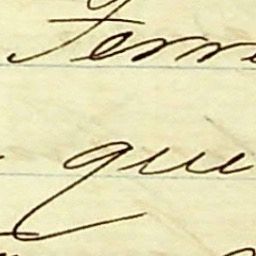 Ferre
que